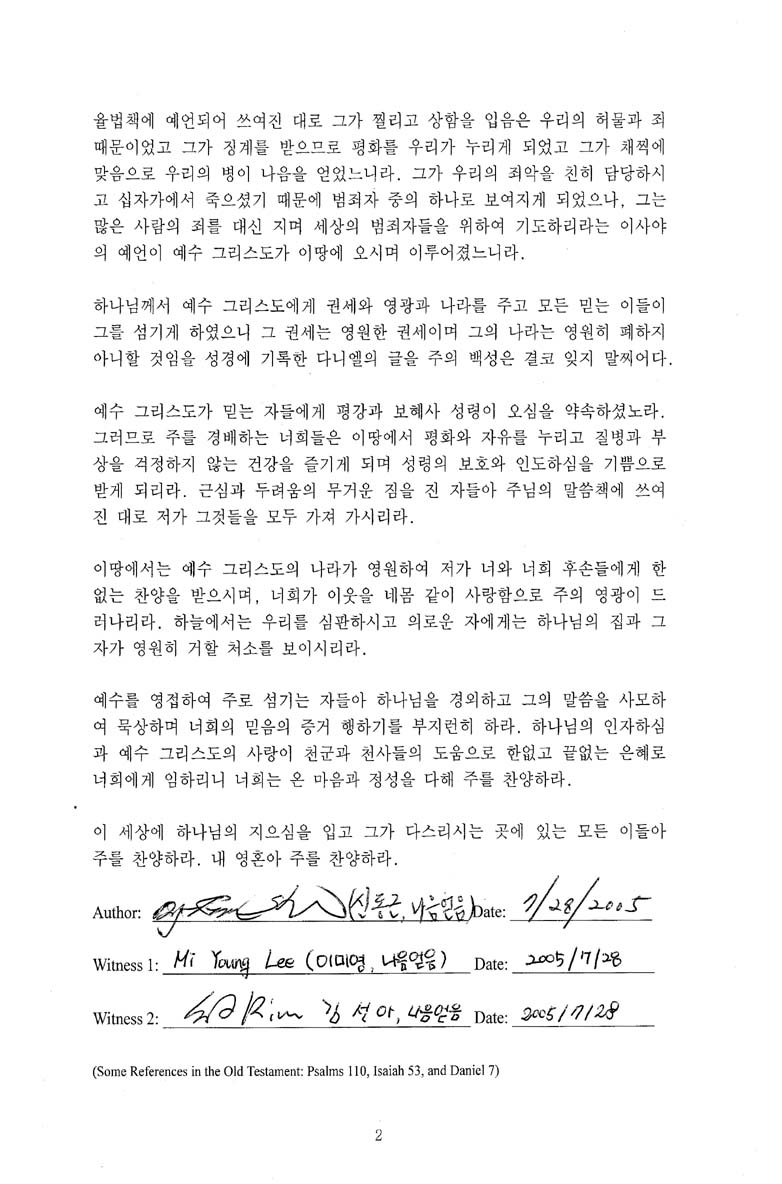 율법책에 예언되어 쓰여진 대로 그가 찔리고 상함을 입음은 우리의 허물과 죄
때문이었고 그가 징계를 받으므로 평화를 우리가 누리게 되었고 그가 채찍에
맞음으로 우리의 병이 나음을 얻었느니라. 그가 우리의 죄악을 친히 담당하시
고 십자가에서 죽으셨기 때문에 범죄자 중의 하나로 보여지게 되었으나, 그는
많은 사람의 죄를 대신 지며 세상의 범죄자들을 위하여 기도하리라는 이사야
의 예언이 예수 그리스도가 이땅에 오시며 이루어졌느니라.
하나님께서 예수 그리스도에게 권세와 영광과 나라를 주고 모든 믿는 이들이
그를 섬기게 하였으니 그 권세는 영원한 권세이며 그의 나라는 영원히 폐하지
아니할 것임을 성경에 기록한 다니엘의 글을 주의 백성은 결코 잊지 말찌어다.
예수 그리스도가 믿는 자들에게 평강과 보혜사 성령이 오심을 약속하셨노라.
그러므로 주를 경배하는 너희들은 이땅에서 평화와 자유를 누리고 질병과 부
상을 걱정하지 않는 건강을 즐기게 되며 성령의 보호와 인도하심을 기쁨으로
받게 되리라. 근심과 두려움의 무거운 짐을 진 자들아 주님의 말씀책에 쓰여
진 대로 저가 그것들을 모두 가져 가시리라.
이땅에서는 예수 그리스도의 나라가 영원하여 저가 너와 너희 후손들에게 한
없는 찬양을 받으시며, 너희가 이웃을 네몸 같이 사랑함으로 주의 영광이 드
러나리라. 하늘에서는 우리를 심판하시고 의로운 자에게는 하나님의 집과 그
자가 영원히 거할 처소를 보이시리라.
예수를 영접하여 주로 섬기는 자들아 하나님을 경외하고 그의 말씀을 사모하
여 묵상하며 너희의 믿음의 증거 행하기를 부지런히 하라. 하나님의 인자하심
과 예수 그리스도의 사랑이 천군과 천사들의 도움으로 한없고 끝없는 은혜로
너희에게 임하리니 너희는 온 마음과 정성을 다해 주를 찬양하라.
이 세상에 하나님의 지으심을 입고 그가 다스리시는 곳에 있는 모든 이들아
주를 찬양하라. 내 영혼아 주를 찬양하라.
Author: (신동근, 나음얻음) Date: 7/28/2005
Witness 1: Mi Young Lee (이미영, 나음얻음) Date: 2005/7/28
Witness 2: Kim 김선아, 나음얻음 Date: 2005/7/28
(Some References in the Old Testament: Psalms 110, Isaiah 53, and Daniel 7)
2